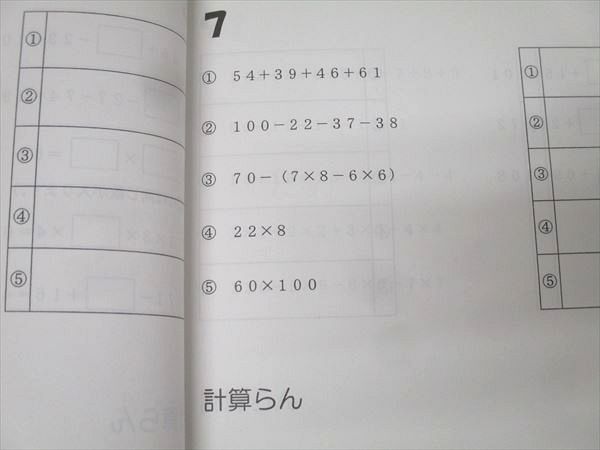 ①
②
③
④
⑤
7
① 54+39+46+61
② 100-22-37-38
③ 70-(7×8-6×6)
④ 22×8
⑤ 60×100
計算らん
①
②
③
④
⑤